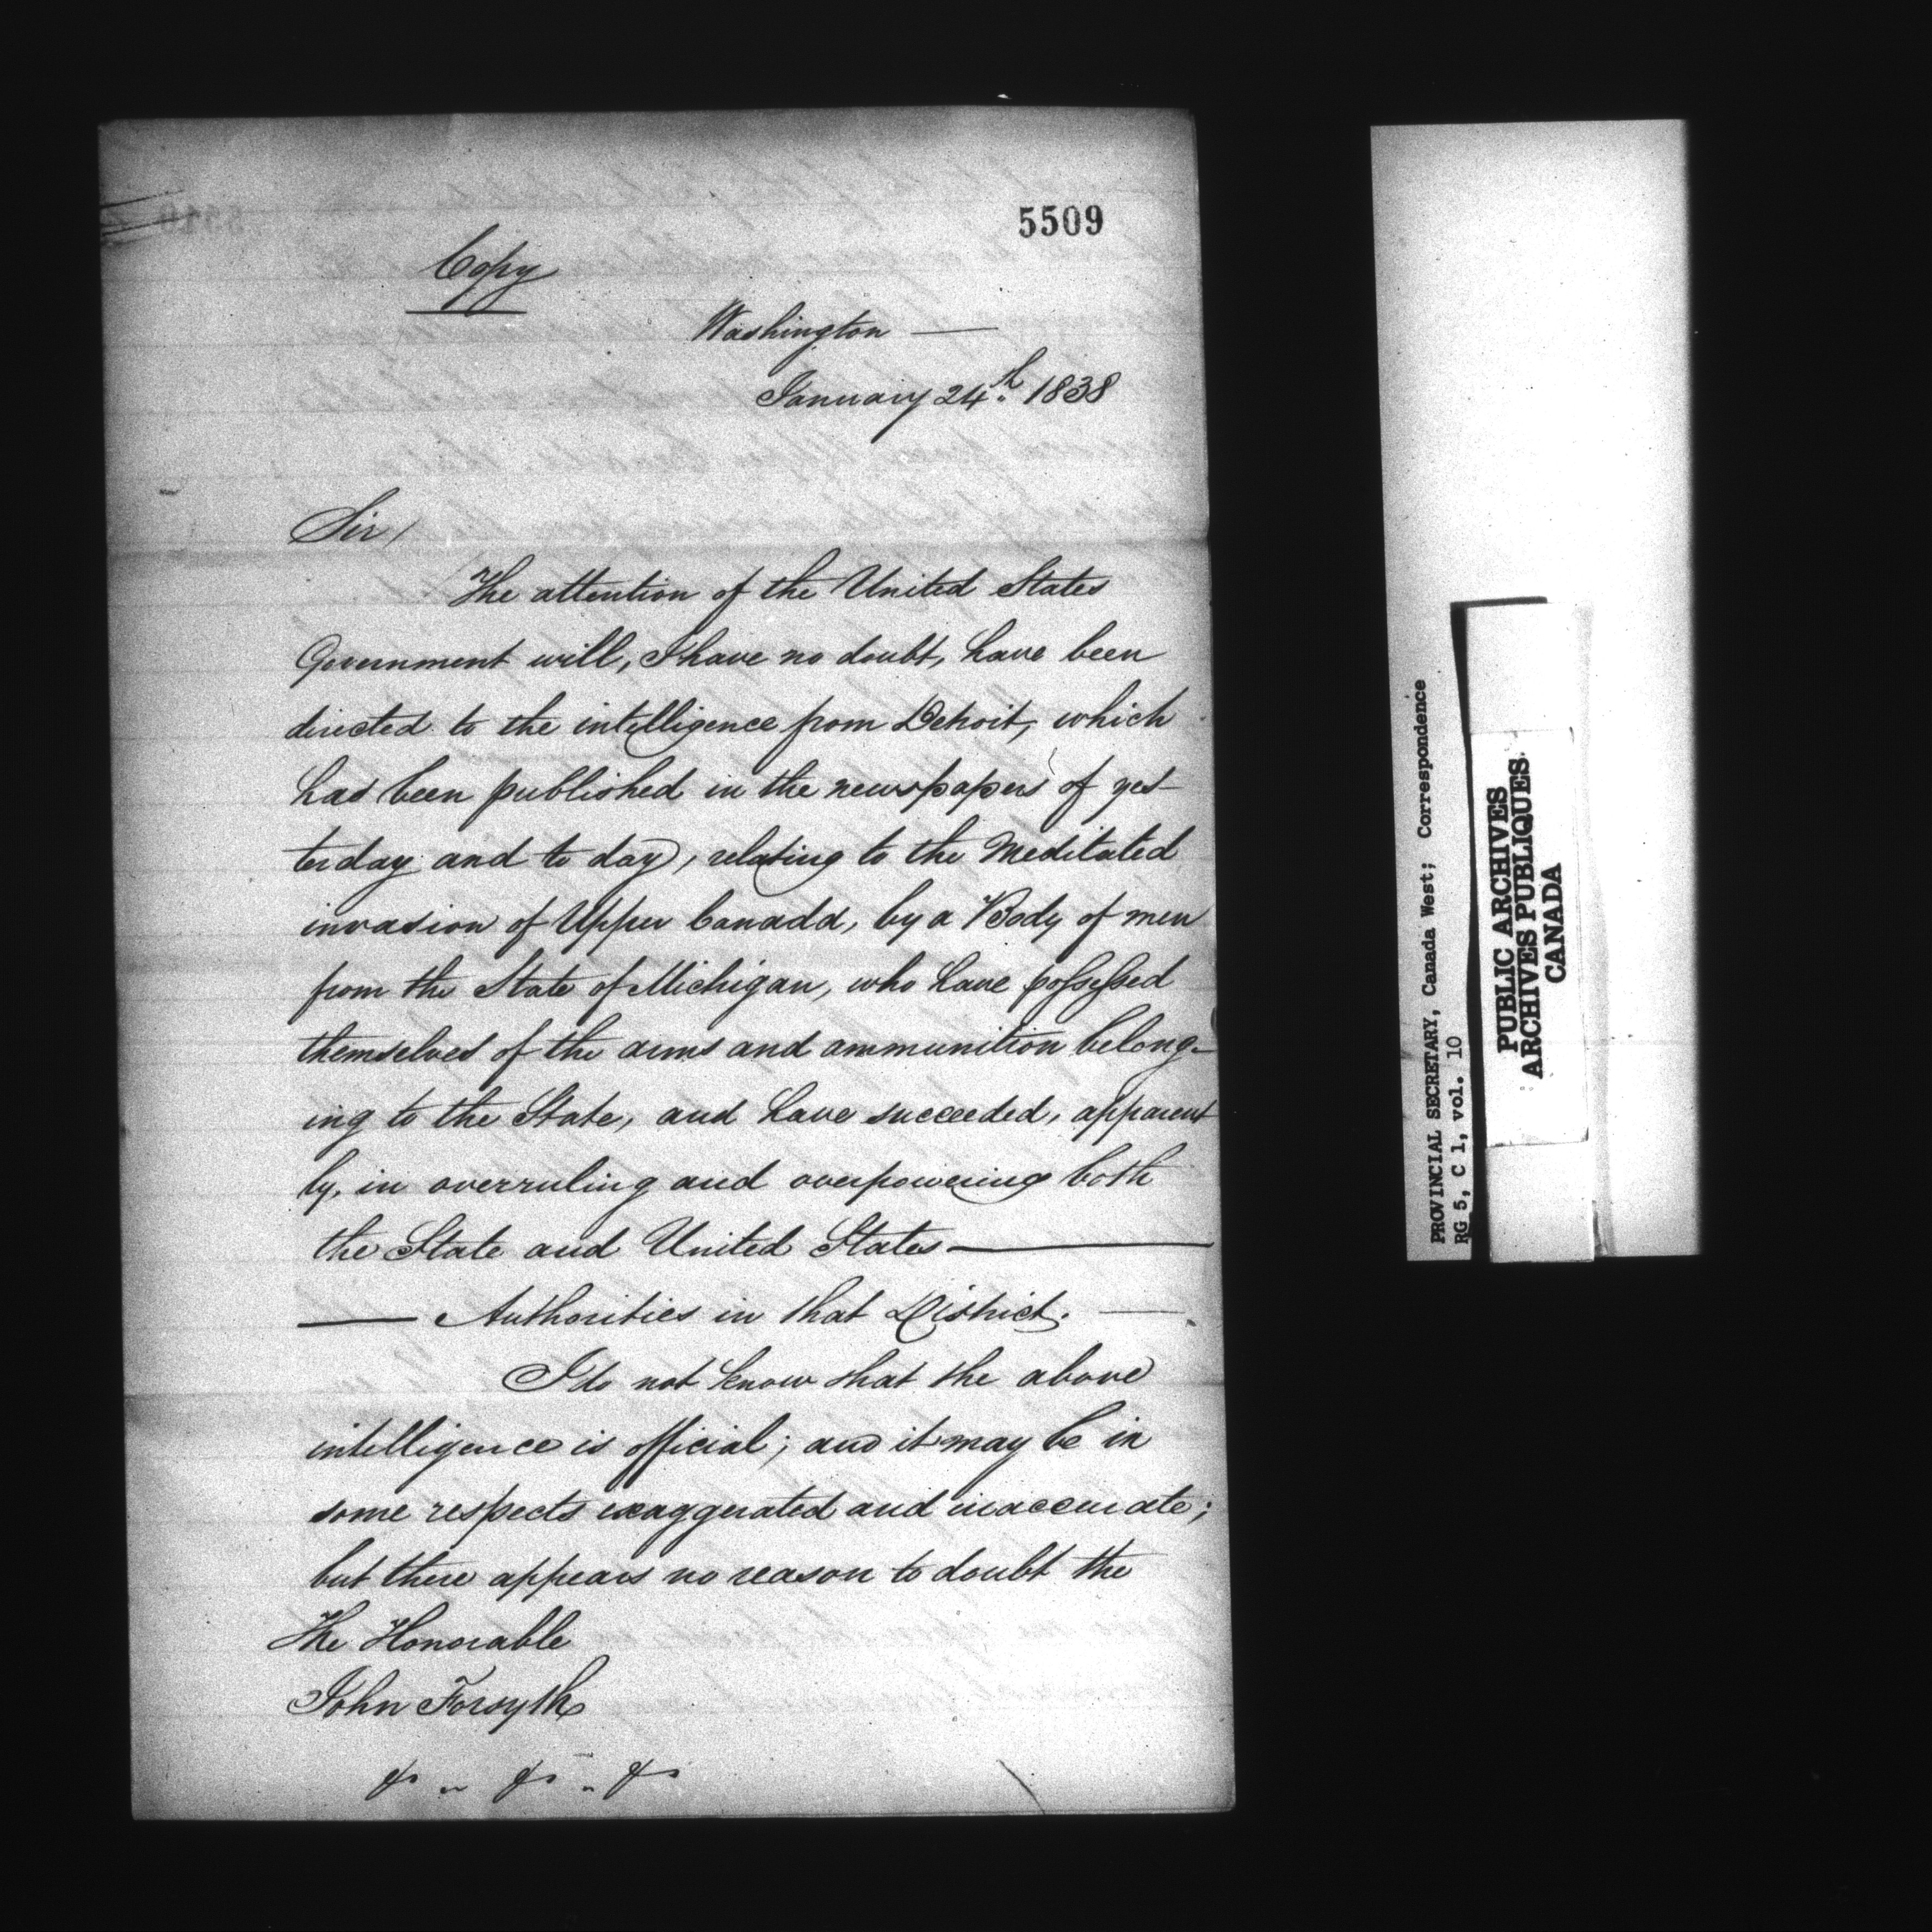 5509
Copy
Washington —
January 24th. 1838
Sir /
The attention of the United States
Government will, I have no doubt, have been
directed to the intelligence from Detroit, which
has been published in the newspapers of yes-
terday and to day, relating to the Meditated
invasion of Upper Canada, by a Body of men
from the State of Michigan, who have possessed
themselves of the arms and ammunition belong-
ing to the State, and have succeeded, apparent
ly, in overruling and overpowering both
the State and United States —
— Authorities in that District. —
I do not know that the above
intelligence is official; and it may be in
some respects exaggerated and inaccurate;
but there appears no reason to doubt the
The Honorable
John Forsyth
&c - &c - &c
PROVINCIAL SECRETARY, Canada West; Correspondence
RG 5, C 1, vol. 10
PUBLIC ARCHIVES
ARCHIVES PUBLIQUES
CANADA